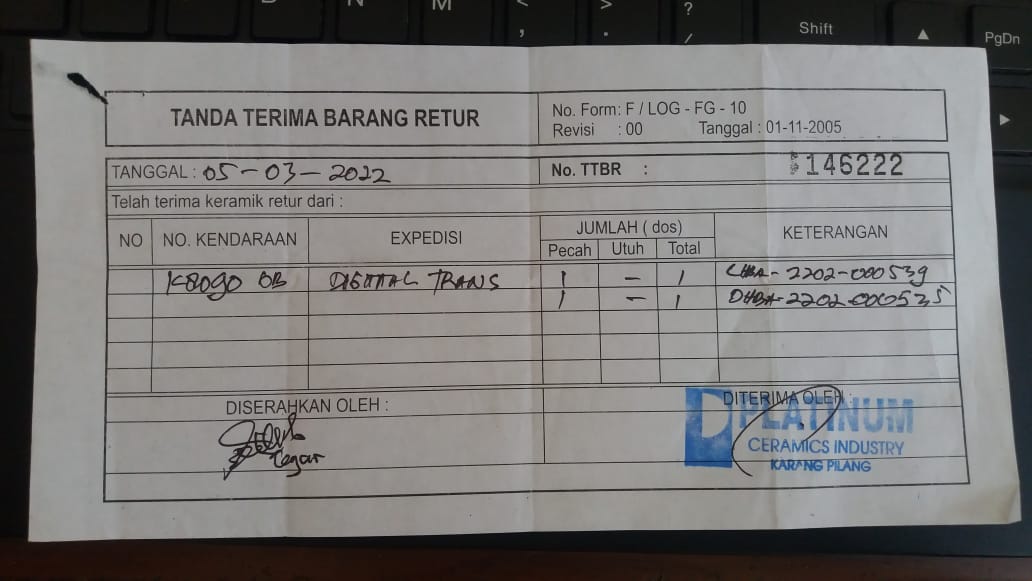 M
<
>
?
,
.
/
Shift
PgDn
TANDA TERIMA BARANG RETUR
No. Form: F / LOG - FG - 10
Revisi : 00 Tanggal : 01-11-2005
TANGGAL : 05-03-2022
No. TTBR : 146222
Telah terima keramik retur dari :
NO NO. KENDARAAN EXPEDISI JUMLAH ( dos) KETERANGAN
Pecah Utuh Total
DIGITAL TRANS 1 - 1 -2202-000539
1 - 1 DHBA-2202-000535
DISERAHKAN OLEH : DITERIMA OLEH :
Tegar
PLATINUM
CERAMICS INDUSTRY
KARANG PILANG